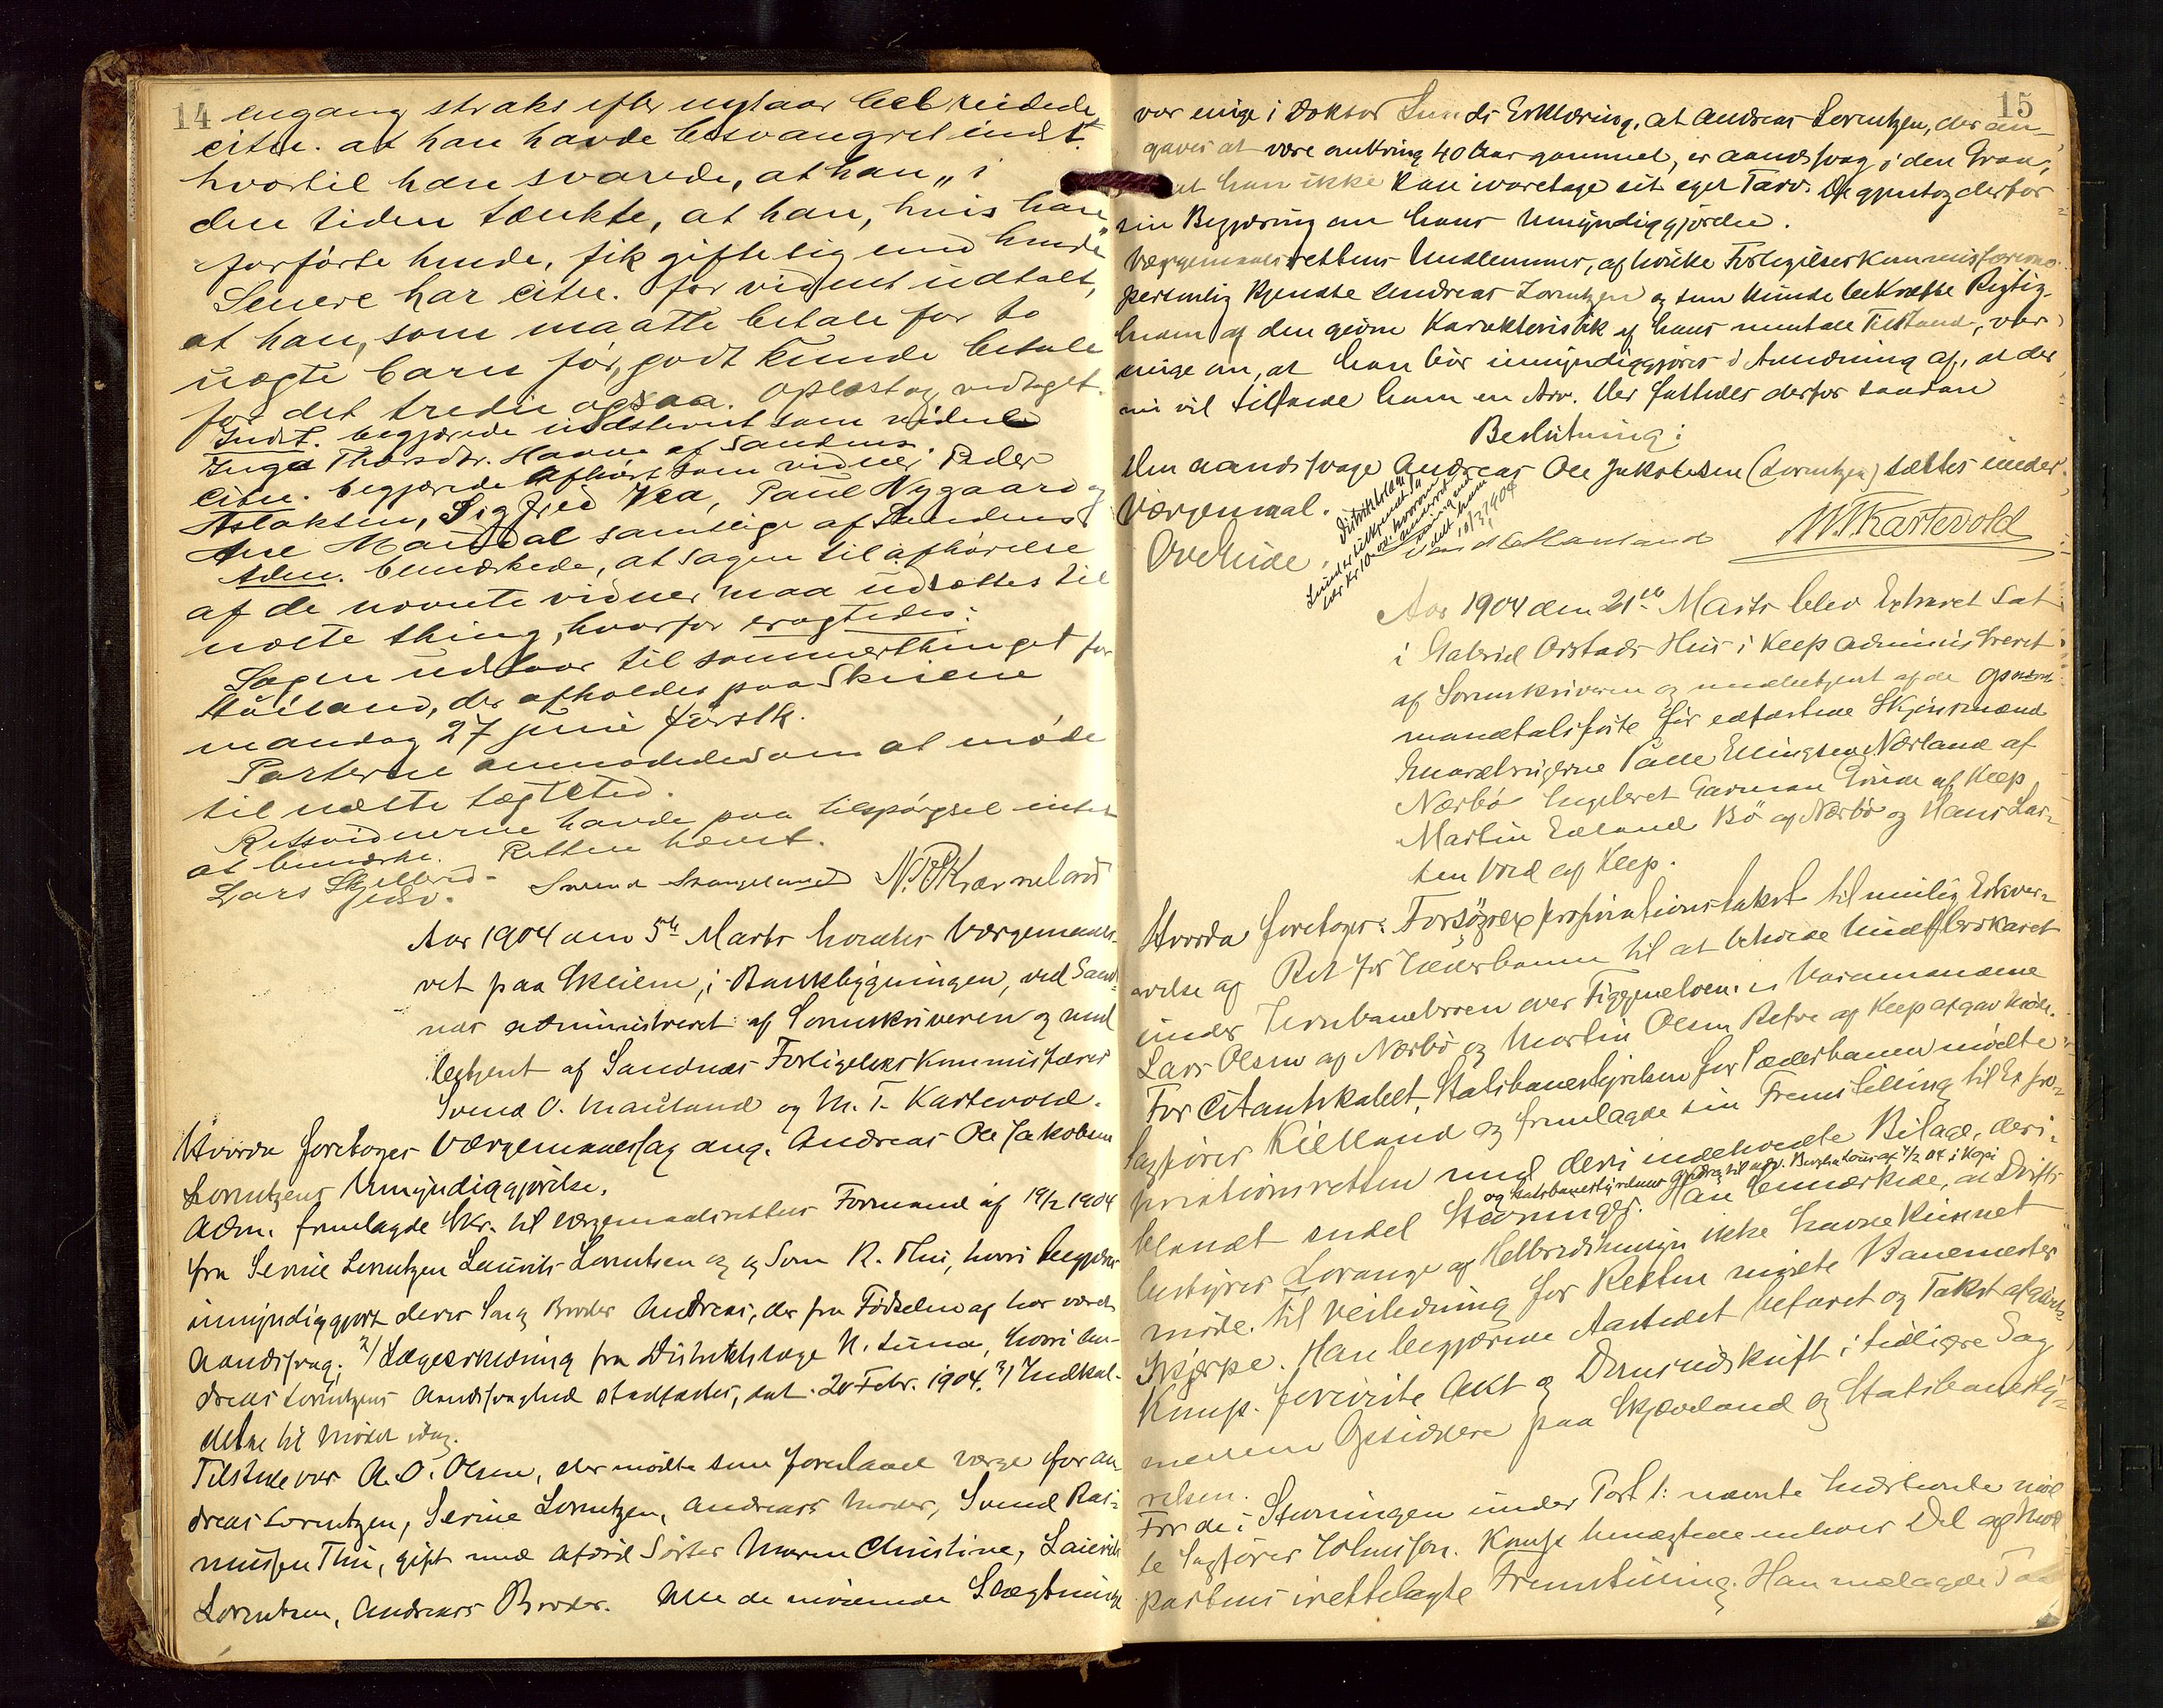 14
engang straks efter nytaar bebreidede
citn. at han havde besvangret indst.
hvortil han svarede, at han „i
den tiden tænkte, at han, hvis han
forførte hende, fik gifte sig med hende"
Senere har citn. for vidnet udtalt,
at han, som maatte betale for to
uægte barn før, godt kunde betale
for det tredie ogsaa. Oplæst og vedtaget.
Indst. begjærede udstevnt som vidne
Inga Thorsdtr. Haave af Sandnes
Citn. begjærede afhørt som vidner Peder
Aslaksen, Sigfred Vea, Paul Nygaard og
Ane Maudal samtlige af Sandnes
Adm. bemærkede, at sagen til afhørelse
af de nævnte vidner maa udsættes til
næste thing, hvorfor eragtedes:
Sagen udstaar til sommerthinget for
Høiland, der afholdes paa Skeiene
mandag 27 juni førstk.
Parterne anmodedes om at møde
til næste tægtsted.
Retsvidnerne havde paa tilspørgsel intet
at bemærke. Retten hævet.
Lars Skjelbred Svend Stangeland N. R. Kværneland
Aar 1904 den 5te Marts holdtes Værgemaals-
ret paa Skeiene, i Bankbygningen, ved Sand-
nes administreret af Sorenskriveren og med
betjent af Sandnes Forligelseskommissærer
Svend O. Mauland og M. T. Kartevold.
Hvorda foretoges Værgemaalssag ang. Andreas Ole Jakobsen
Lorentzens Umyndiggjørelse.
Adm. fremlagde Skr. til værgemaalsrettens Formand af 19/2 1904
fra Serine Lorentzen Laurits Lorentsen og Svm R. Thu, hvori begjæres
umyndiggjort deres Søn og Broder Andreas, der fra Fødselen af har været
Aandssvag; 2/ Lægeerklæring fra Distriktslæge N. Lund, hvori An-
dreas Lorentzens Aandssvaghed stadfæstes, dat. 20 Febr. 1904. 3/ Indkal-
delse til Mødet idag.
Tilstede var A. O. Olsen, der mødte som foreslaaet værge for An-
dreas Lorentzen, Serine Lorentzen, Andreas's Moder, Svend Ras-
mussen Thu, gift med afdød Søster Maren Christine, Laurits
Lorentsen, Andreas's Broder. Alle de mødende Slægtninge
15
var enige i Doktor Lunds Erklæring, at Andreas Lorentzen, der an-
gaves at være omkring 40 Aar gammel, er aandssvag i den Grad,
at han ikke kan ivaretage sit eget Tarv. De gjentog derfor
sin Begjæring om hans Umyndiggjørelse.
Værgemaalsrettens Medlemmer, af hvilke Forligelseskommissærerne
personlig kjendte Andreas Lorentzen og som kunde bekræfte Rigtig-
heden af den givne Karakteristik af hans mentale Tilstand, var
enige om, at han bør umyndiggjøres i Anledning af, at der
nu vil tilfalde ham en Arv. Der fattedes derfor saadan
Beslutning:
Den aandssvage Andreas Ole Jakobsen (Lorentzen) sættes under
Værgemaal.
Distriktslæge
Lund er tilkjendt Sa
lær Kr 10.00. hvorom
underret
ning er med
delt ham
10/3 1904
Ove Eide. Svend O. Mauland M. T. Kartevold
Aar 1904 den 21de Marts blev Extraret sat
i Gabriel Orstads Hus i Klep administreret
af Sorenskriveren og medbetjent af de opnævnte
mandtalsførte før edfæstede Skjønsmænd
Gaardbrugerne Palle Ellingsen Nærland af
Nærbø Ingebret Garman Grude af Klep,
Martin Edland Bø af Nærbø og Hans Lar-
sen Hord af Klep.
Hvorda foretoges: Forsøgsexpropriationstakst til mulig Erhver-
velse af Ret for Jæderbanen til at beholde Underbrokaret
under Jernbanebroen over Figgjoelven. Varamændene
Lars Olsen af Nærbø og Martin Olsen Refve af Klep afgav Møde.
For Citantskabet, Statsbanestyrelsen for Jæderbanen mødte
Sagfører Kielland og fremlagde sin Fremstilling til Expro-
priationsretten med deri indeholdte Bilage, deri-
og Statsbanestyrelsens Andrag til adv. Berglia Løus af 4/2 04 i Kopi
blandt endel Stevninger. Han bemærkede, at Drifts-
bestyrer Lorange af Helbredshensyn ikke havde kunnet
møde. Til Veiledning for Retten mødte Banemester
Skjerpe. Han begjærede Aastedet befaret og Takst afgivet
Komp. foreviste Akt og Domsudskrift i tidligere Sag
mellem Opsiddere paa Skjæveland og Statsbanesty-
relsen.
For de i Stevningen under Post 1. nævnte Indstevnte mød
te Sagfører Johnson. Komp. benægtede enhver Del af Mod
partens irettelagte Fremstilling. Han nedlagde